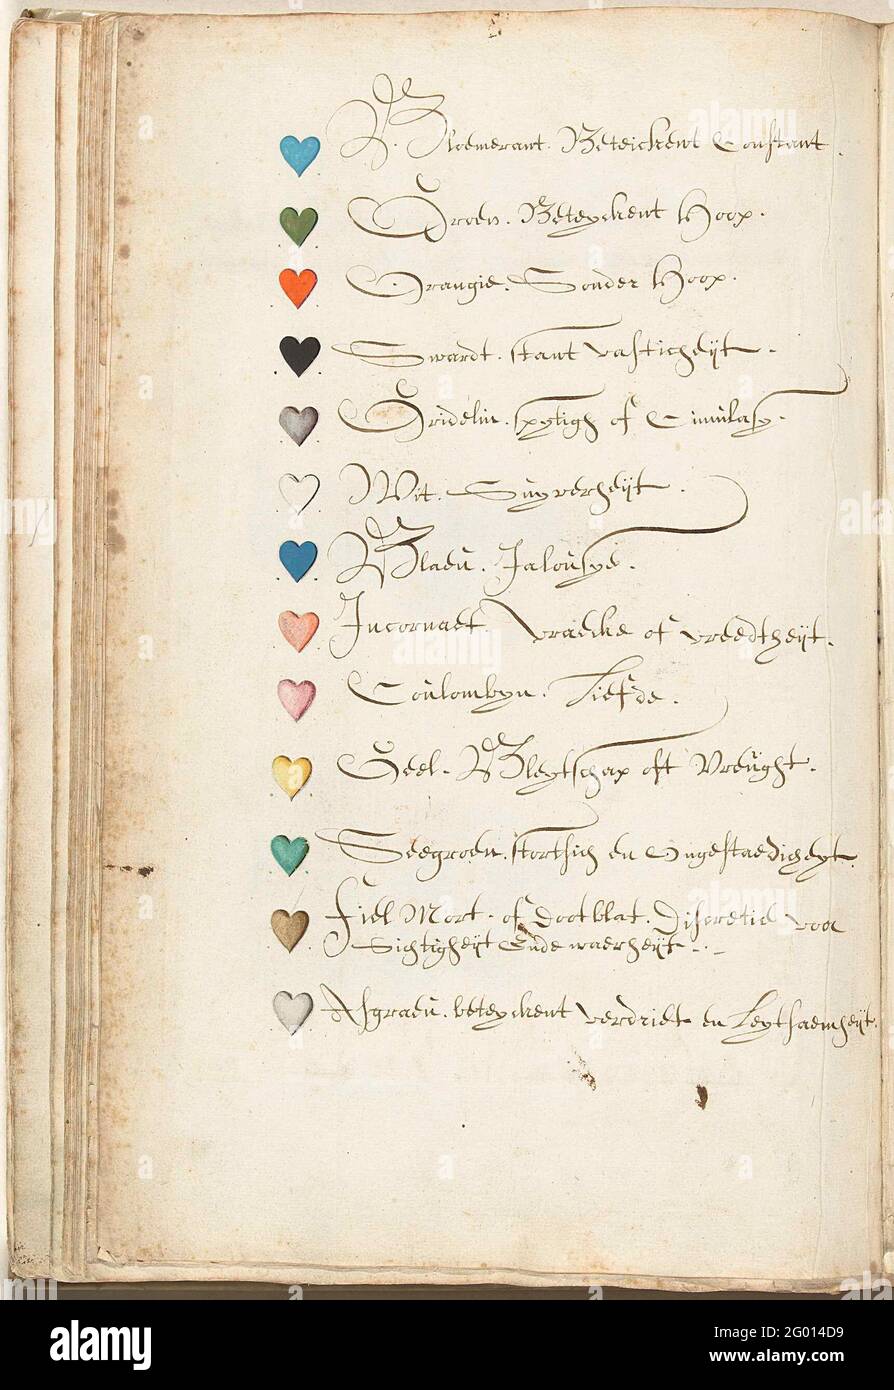 Bloemerant. Beteickent Constant.
Groen. Beteyckent Hoop.
Orangie. Sonder Hoop.
Swardt. stant vasticheijt.
Gridelin. spytigh of Cimulasy.
Wit. Suyverheijt.
Blaeu. Jalousye.
Incornaet. Vraecke of vreedtheijt.
Coulombyn. Liefde.
Geel. Bleytschap oft Vreught.
Seegroen. stortsich en Ongestaedicheyt
Fiel Mort. of Dootblat. Discretie voor
Sichtigheijt Ende waerheijt.
Asgraeu. beteyckent verdriet en Leytsaemheijt.
alamy
Image ID: 2G014D9
www.alamy.com